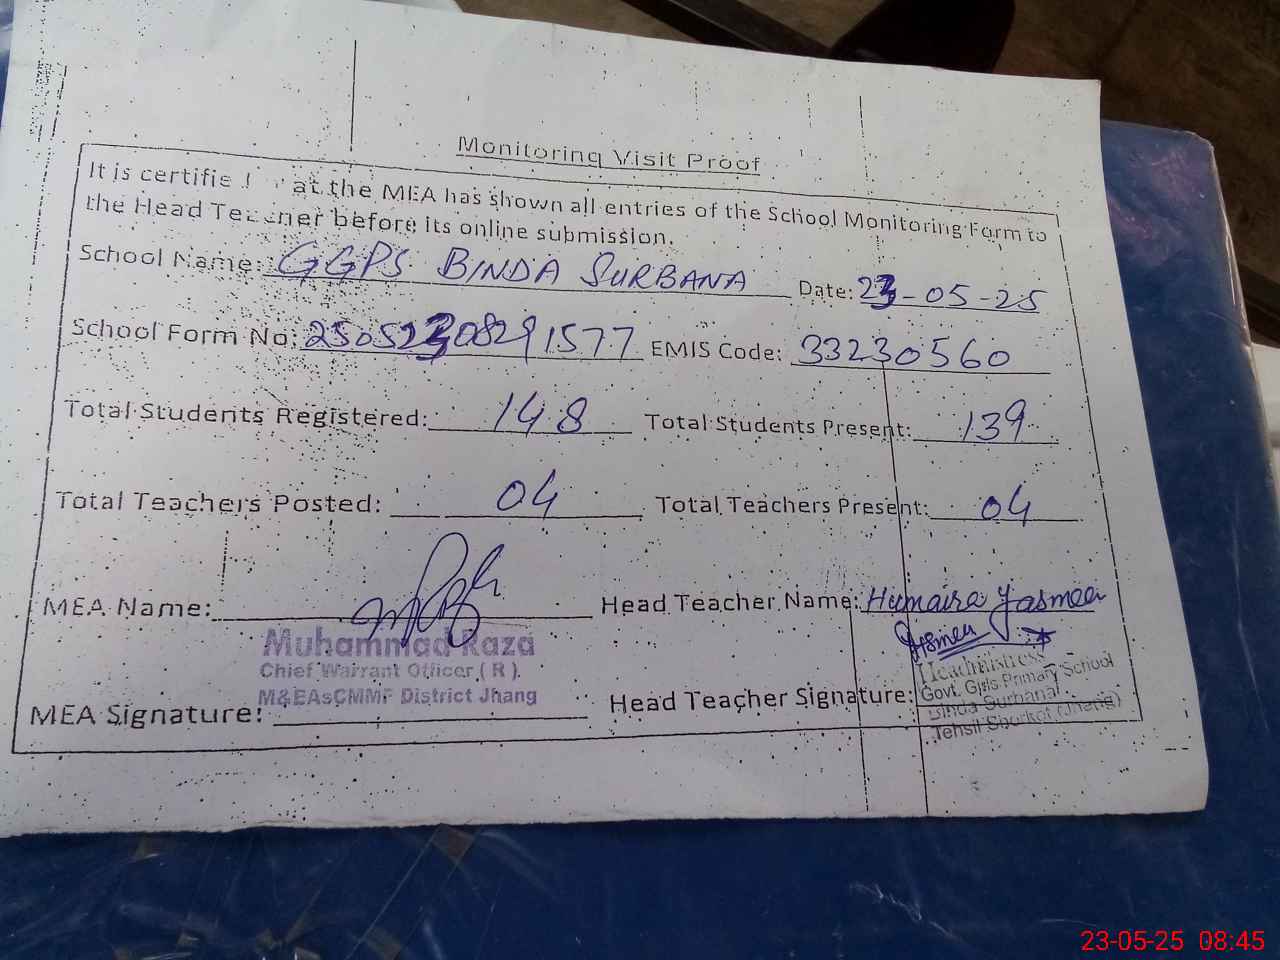 Monitoring Visit Proof
It is certifie at the MEA has shown all entries of the School Monitoring Form to
the Head Teacher before its online submission.
School Name: GGPS BINDA SURBANA Date: 23-05-25
School Form No: 25052308291577 EMIS Code: 33230560
Total Students Registered: 148 Total Students Present: 139
Total Teachers Posted: 04 Total Teachers Present: 04
MEA Name: Head Teacher Name: Humaira Yasmeen
Muhammad Raza
Chief Warrant Officer ( R ).
M&EAsCMMF District Jhang
MEA Signature: Head Teacher Signature:
Headmistress
Govt. Girls Primary School
Binda Surbana
Tehsil Shorkot (Jhang)
23-05-25 08:45